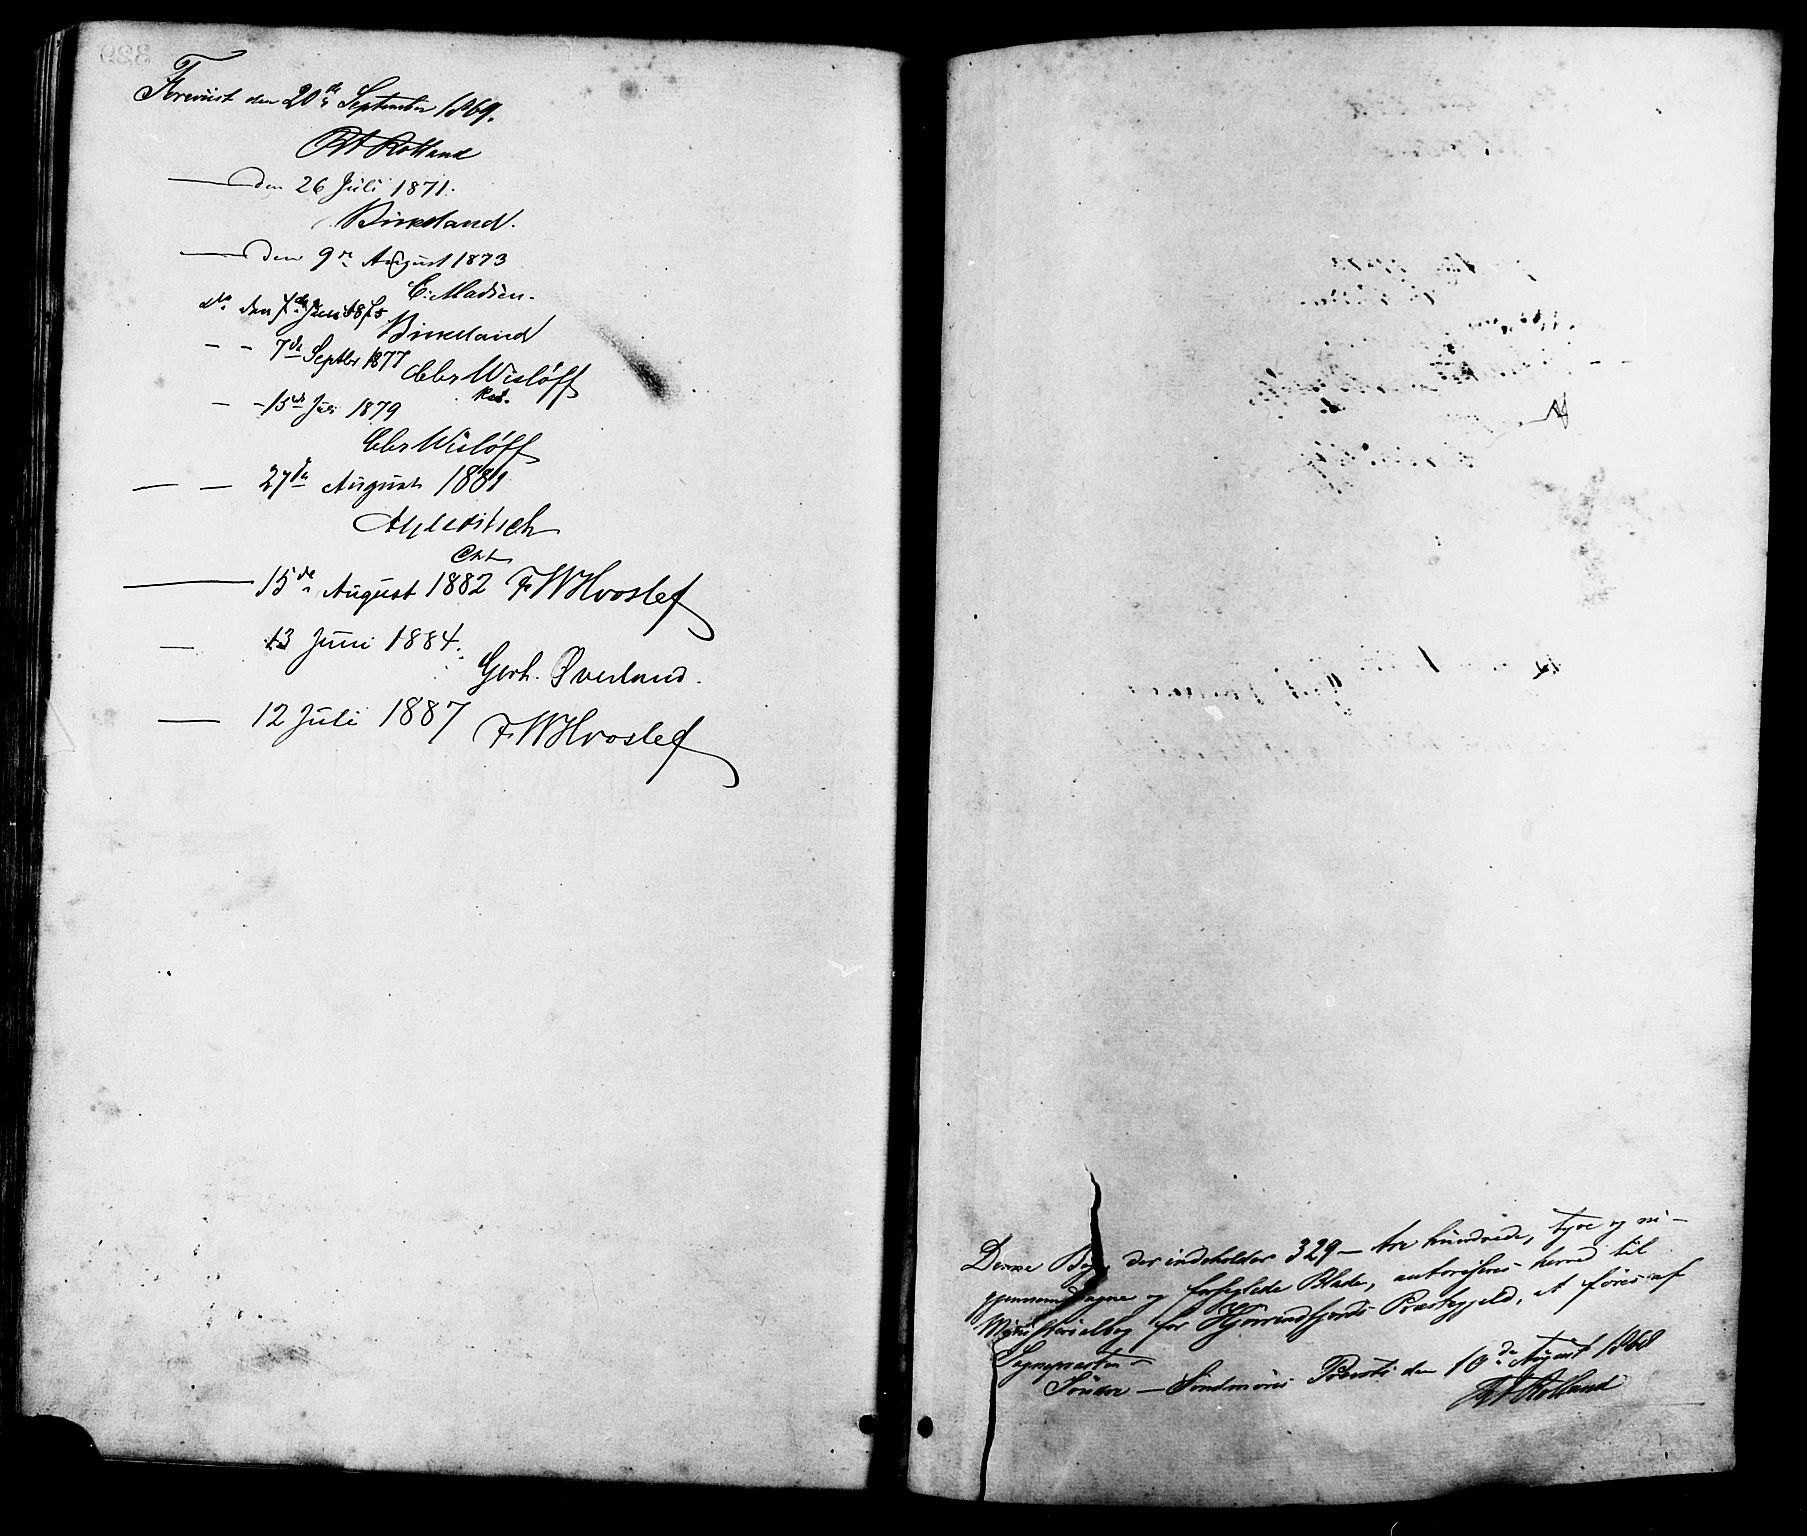 Foreviist den 20de September 1869.
Rolland
den 26 Juli 1871.
Birkeland.
den 9de August 1873
C. Madsen.
do den 7de Juni 1875
Birkeland
- - 7de Septbr 1877
Chr Wisløff
Res.
- - 15de Juli 1879
Chr Wisløff
— — 27de August 1881
— 15de August 1882 F W Hvoslef
— 13 Juni 1884.
Gerh. Øverland.
— 12 Juli 1887 F W Hvoslef
Denne Bog, der indeholder 329 – tre hundrede, tyve og ni –
gjennemdragne og forseglede Blade, autoriseres herved til
Ministerialbog for Hjørendfjords Præstegjeld, at føres af
Sognepræsten –
Søndre – Søndmøres Provsti den 10de August 1868
Rolland